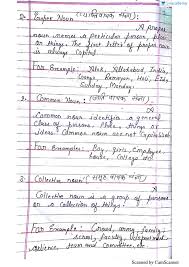 Proper Noun (व्यक्तिवाचक संज्ञा)
A proper
noun names a particular person, place
or things. The first letter of proper noun
is always Capital.
For Example: Yatek, India,
Ganga, Ramayan, Hari,
Sunday, Monday.
2- Common Noun (जातिवाचक संज्ञा)
A
Common noun identifies a general
class of persons. Place things or
ideas. Common nouns are not capitalized
For Examples: Boy, girls, Employee,
house, College etc.
3- Collective noun (समूह वाचक संज्ञा)
A
Collective noun is a group of persons
or a collection of things.
For Example: Crowd, army, family
faculty, department
audience, team and Committee, etc.
Scanned by CamScanner